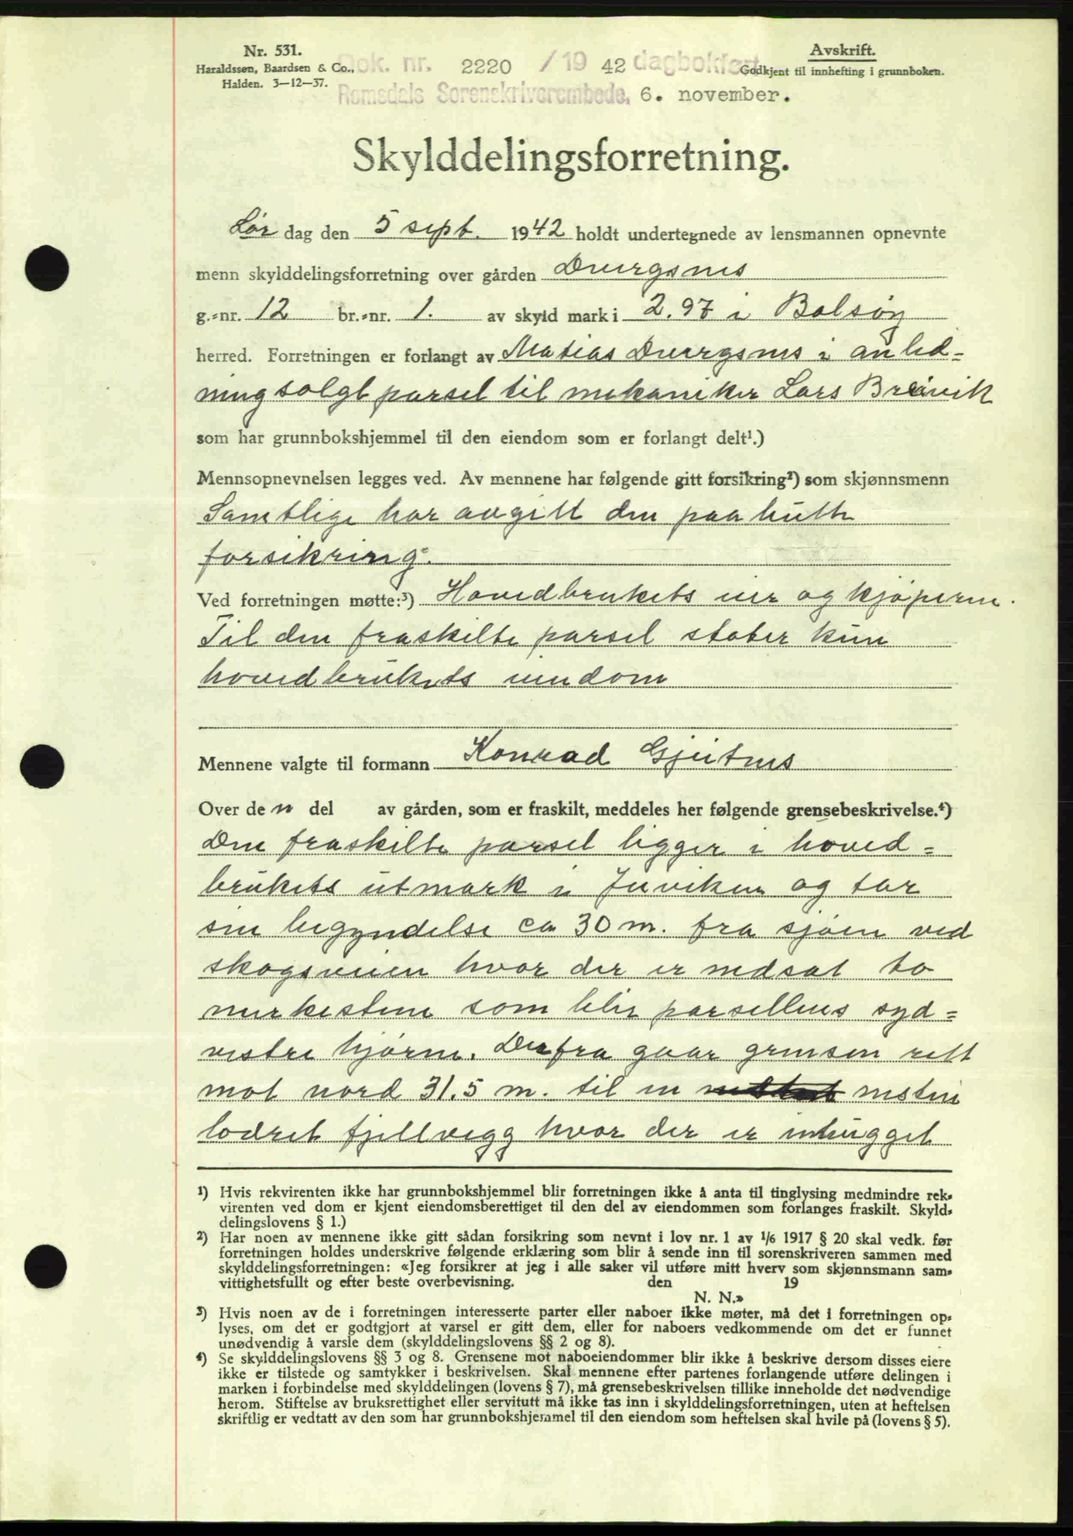 Nr. 531.
Haraldssen, Baardsen & Co.,
Halden. 3—12—37.
Dok. nr. 2220 /19 42 dagbokført
Romsdals Sorenskriverembede, 6. november.
Avskrift.
Godkjent til innhefting i grunnboken.
Skylddelingsforretning.
Lør dag den 5 sept. 1942 holdt undertegnede av lensmannen opnevnte
menn skylddelingsforretning over gården Dvergsnes
g.-nr. 12 br.-nr. 1. av skyld mark i 2.97 i Bolsøy
herred. Forretningen er forlangt av Matias Dvergsnes i anled-
ning solgt parsel til mekaniker Lars Breivik
som har grunnbokshjemmel til den eiendom som er forlangt delt¹.)
Mennsopnevnelsen legges ved. Av mennene har følgende gitt forsikring²) som skjønnsmenn
Samtlige har avgitt den paabudte
forsikring.
Ved forretningen møtte:³) Hovedbrukets eier og kjøperne.
Til den fraskilte parsel støter kun
hovedbrukets eiendom
Mennene valgte til formann Konrad Gjeitnes
Over de n del av gården, som er fraskilt, meddeles her følgende grensebeskrivelse.⁴)
Den fraskilte parsel ligger i hoved-
brukets utmark i Juviken og tar
sin begyndelse ca 30 m. fra sjøen ved
skogsveien hvor der er nedsat to
merkestene som blir parsellens syd-
vestre hjørne. Derfra gaar grensen rett
mot nord 31.5 m. til en nesten
lodret fjellvegg hvor der er inhugget
¹) Hvis rekvirenten ikke har grunnbokshjemmel blir forretningen ikke å anta til tinglysing medmindre rek-
virenten ved dom er kjent eiendomsberettiget til den del av eiendommen som forlanges fraskilt. Skyld-
delingslovens § 1.)
²) Har noen av mennene ikke gitt sådan forsikring som nevnt i lov nr. 1 av ¹/₆ 1917 § 20 skal vedk. før
forretningen holdes underskrive følgende erklæring som blir å sende inn til sorenskriveren sammen med
skylddelingsforretningen: «Jeg forsikrer at jeg i alle saker vil utføre mitt hverv som skjønnsmann sam-
vittighetsfullt og efter beste overbevisning. den 19
N. N.»
³) Hvis noen av de i forretningen interesserte parter eller naboer ikke møter, må det i forretningen op-
lyses, om det er godtgjort at varsel er gitt dem, eller for naboers vedkommende om det er funnet
unødvendig å varsle dem (skylddelingslovens §§ 2 og 8).
⁴) Se skylddelingslovens §§ 3 og 8. Grensene mot naboeiendommer blir ikke å beskrive dersom disses eiere
ikke er tilstede og samtykker i beskrivelsen. Skal mennene efter partenes forlangende utføre delingen i
marken i forbindelse med skylddelingen (lovens § 7), må grensebeskrivelsen tillike inneholde det nødvendige
herom. Stiftelse av bruksrettighet eller servitutt må ikke tas inn i skylddelingsforretningen, uten at heftelsen
skriftlig er vedtatt av den som har grunnbokshjemmel til den eiendom som heftelsen skal hvile på (lovens § 5).